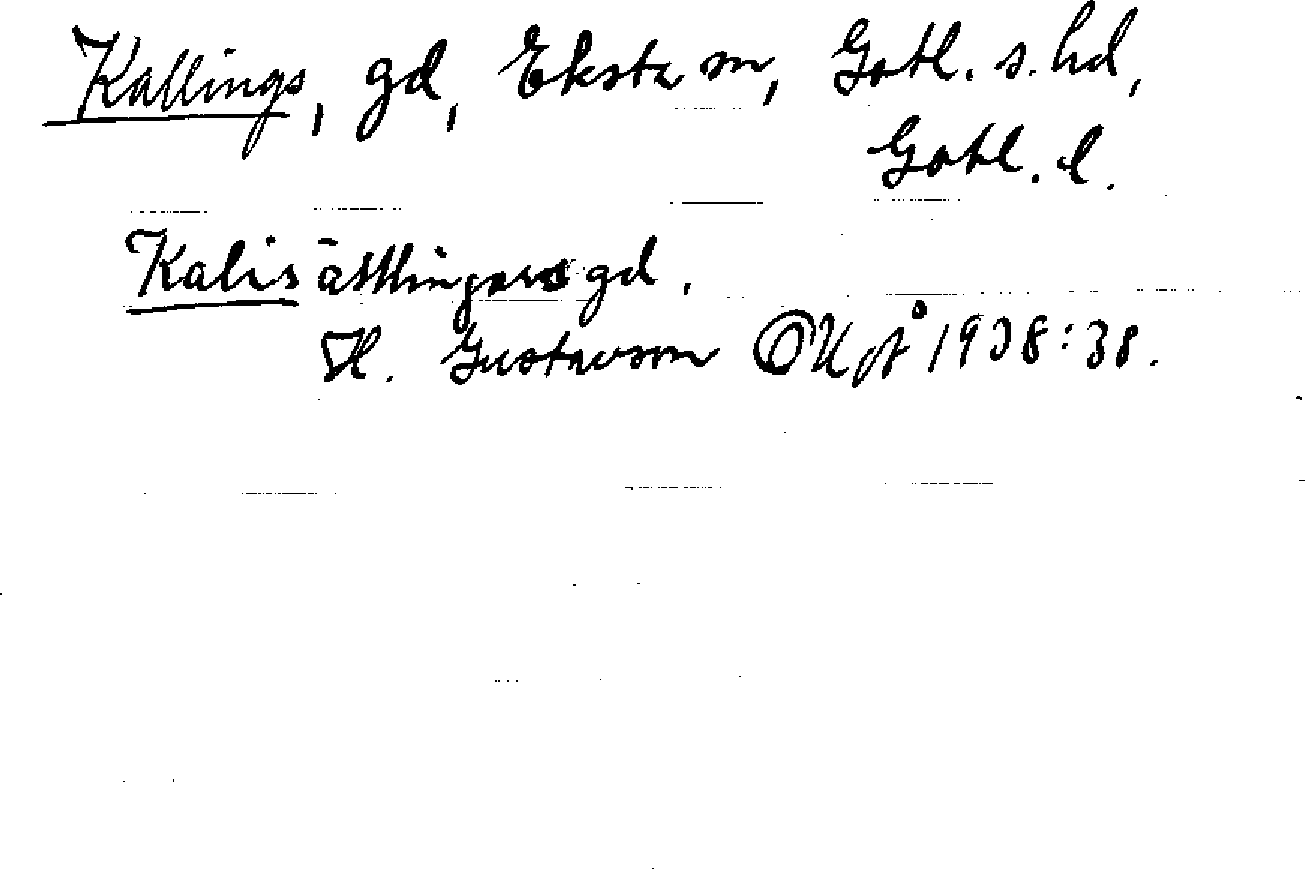 Kallings, gd, Eksta sn, Gotl. s. hd,
Gotl. l.
Kalis ättlingars gd.
H. Gustavson OUÅ 1938:38.